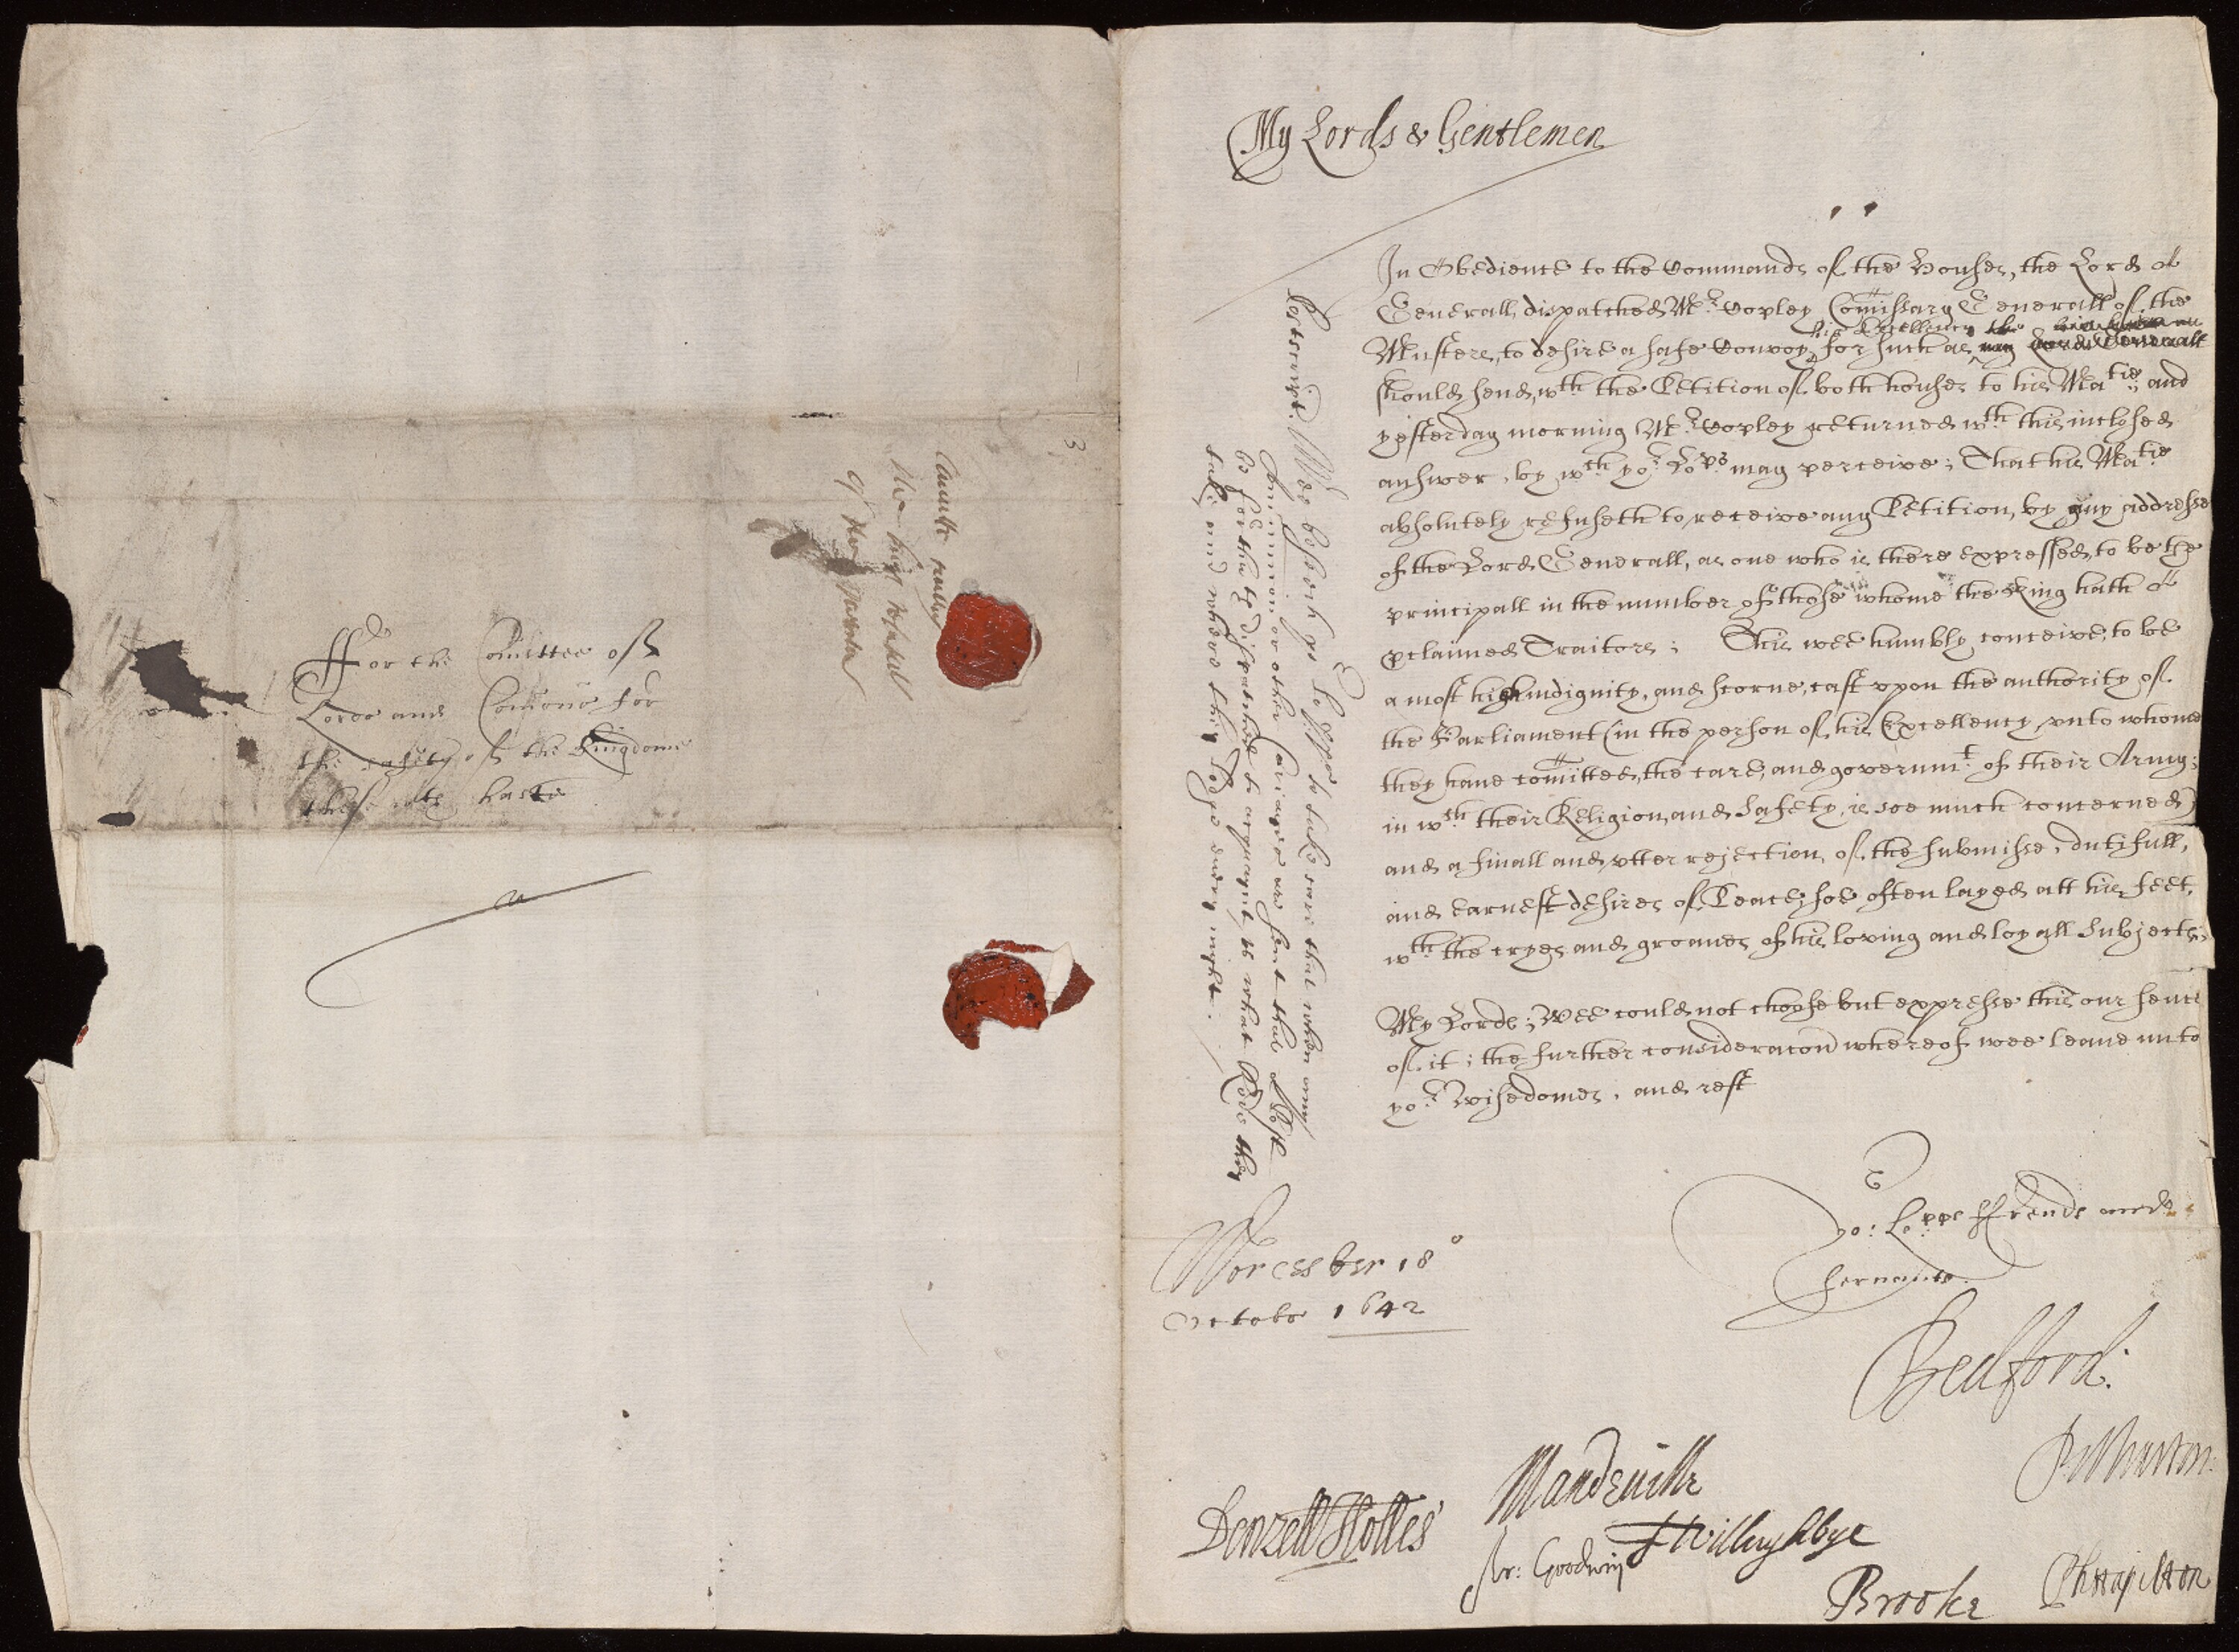 For the Comittee off
Lords and Comons for
the safety off the Kingdome
these wth haste
3
the king refusall
of the
My Lords & Gentlemen
In Obedience to the Commands of the Houses, the Lord
Generall, dispatched Mr. Copley Comissary Generall of the
Musters, to desire a safe Convoy, for such as his Excellency
should send, wth the Petition of both houses to his Matie; and
yesterday morning Mr. Copley returned wth this inclosed
answer, by wch yor. Lopps may perceive; That his Matie
absolutely refuseth to receive any Petition, by any addresse
of the Lord Generall, as one who is there expressed, to be the
principall in the number of those whome the King hath
pclaimed Traitors; This wee humbly conceive, to be
a most high indignity, and scorne, cast upon the authority of
the Parliament (in the person of his Excellency, unto whome
they have comitted, the care, and governmt. of their Army;
in wch their Religion, and Safety, is soe much concerned)
and a finall and utter rejection, of the submisse, dutifull,
and earnest desires of Peace, soe often layed att his feet,
wth the cryes and groanes of his loving and loyall Subjects;
My Lords; Wee could not choose but expresse this our sence
of it; the further consideracon whereof wee leave unto
yor. Wisedomes, and rest
yo: Lopps ffrends and
servants.
Postscript. Wee beseech yo Lopps to take care that when any
Ammunition or other Cariages are sent that
be forthwth dispatched to acquaint us what Rode they
take and where they Lodge every night.
Worcester 18o
October 1642
Bedford:
P Wharton:
Mandevill
Denzell Holles
F Willughbye
Ar: Goodwin
Brooke
Ph Stapilton